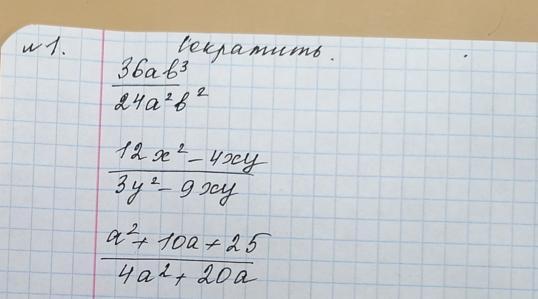 №1. Сократить.
36ab³
24a²b²
12x² - 4xy
3y² - 9xy
a² + 10a + 25
4a² + 20a